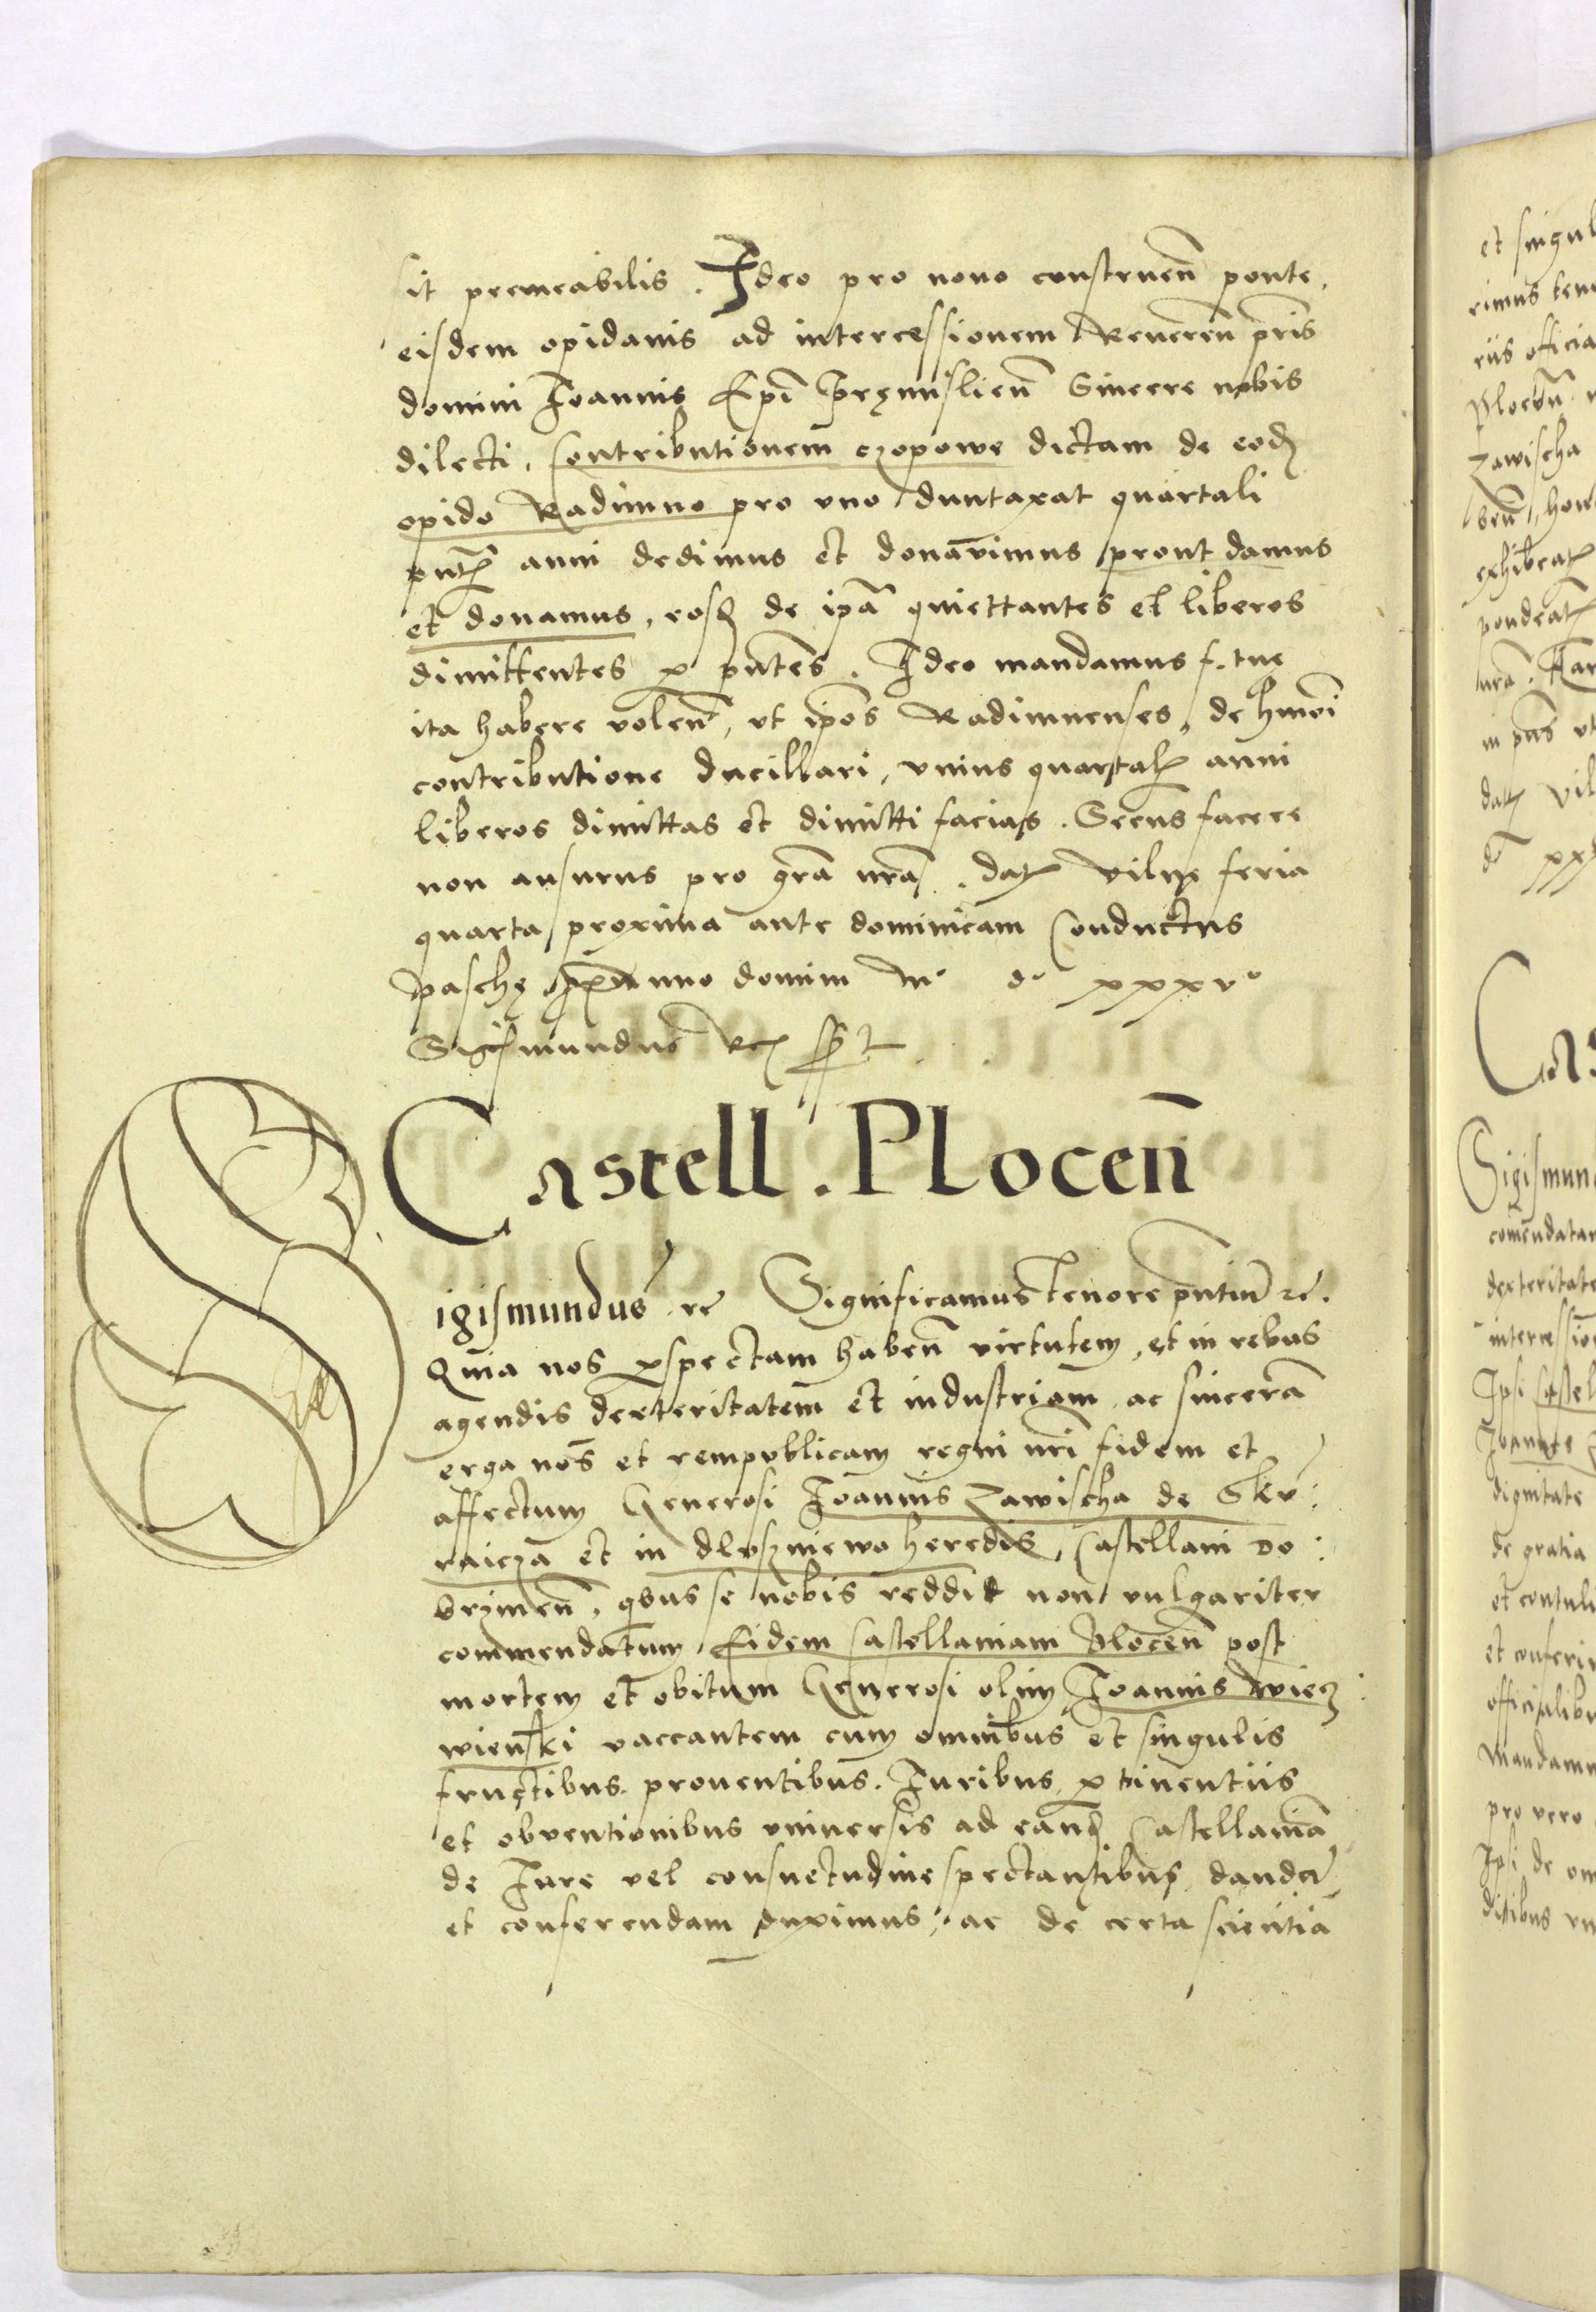 sit permeabilis. Ideo pro novo construen̄ ponte,
eisdem opidanis ad intercessionem Reveren̄ pr̄is
domini Ioannis Ep̄i Pręmislien̄ Sincere nobis
dilecti, Contributionem czopowe dictam de eod̄
opido Radimno pro uno duntaxat quartali
pn̄t̄ anni dedimus et donavimus prout damus
et donamus, eosd̄ de ip̄a quiettantes et liberos
dimittentes p̄ pn̄tes. Ideo mandamus f. tuę
ita habere volen̄, ut ip̄os Radimnenses, de hm̄oi
contributione ducillari, unius quartal̄ anni
liberos dimittas et dimitti facias. Secus facere
non ausurus pro grā nr̄a. dat̄ Vilnę feria
quarta proxima ante dominicam Conductus
Paschę Anno domini M° d° xxxv°
Sigismundus Rex sst
Castell. Plocen̄
Sigismundus rc̄ Significamus tenore pn̄tiū rc̄.
Quia nos p̄spectam haben̄ virtutem, et in rebus
agendis dexteritatem et industriam, ac sincerā
erga nos et rempublicam regni nr̄i fidem et
affectum Generosi Ioannis Zawischa de Skv:
raicza et in dluszniewo heredis, Castellani Do:
brzinen̄, qbus se nobis reddidt non vulgariter
commendatum, Eidem Castellaniam Plocen̄ post
mortem et obitum Generosi olim Ioannis Wiecz:
wienski vaccantem cum omnibus et singulis
fructibus. proventibus. Iuribus, p̄tinentiis
et obventionibus universis ad eand̄ Castellaniā
de Iure vel consuetudine spectantibus, dandā
et conferendam duximus, ac de certa scientia